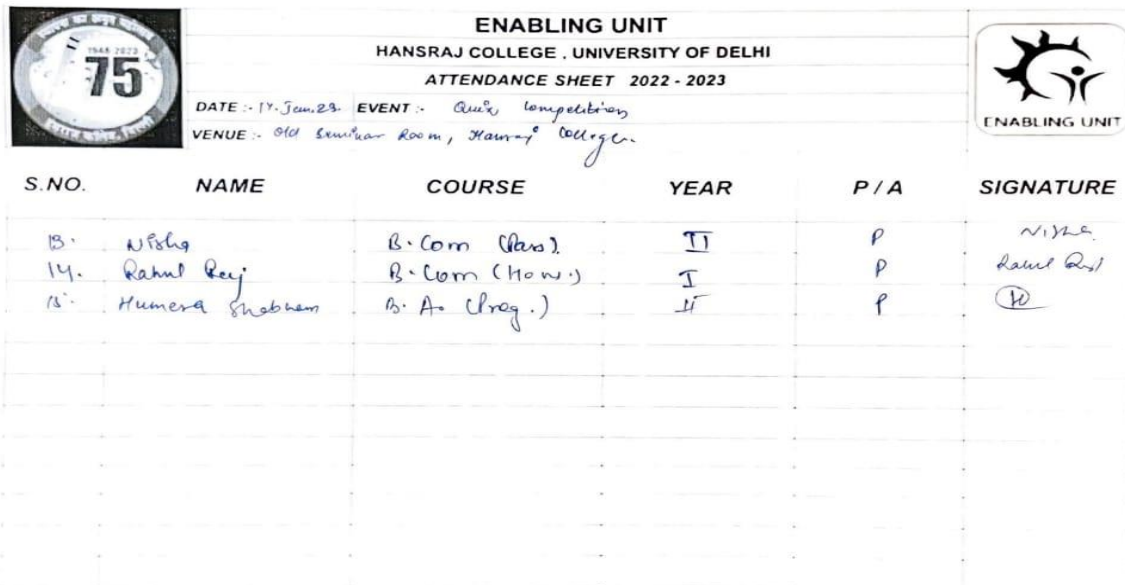 1948-2023
75
ENABLING UNIT
HANSRAJ COLLEGE , UNIVERSITY OF DELHI
ATTENDANCE SHEET 2022 - 2023
DATE :- 14. Jan. 23. EVENT :- Quiz Competition
VENUE :- Old Seminar Room, Hansraj College.
ENABLING UNIT
S.NO. NAME COURSE YEAR P / A SIGNATURE
13. Nisha B. Com (Pass). II P Nisha
14. Rahul B. Com (Hons.) I P Rahul
15. Humera Shabnam B. A. (Prog.) II P